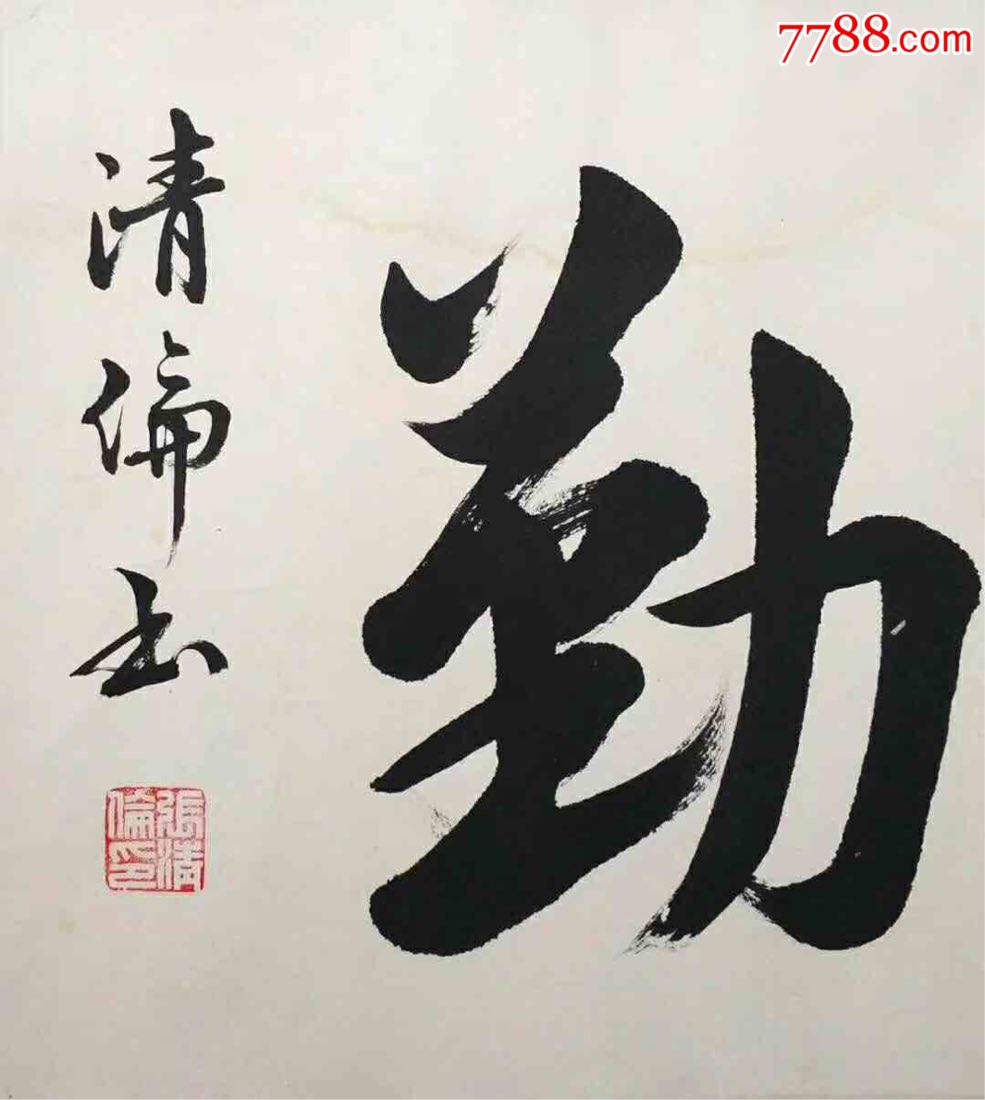 7788.com
勤
清倫书
張清
倫印